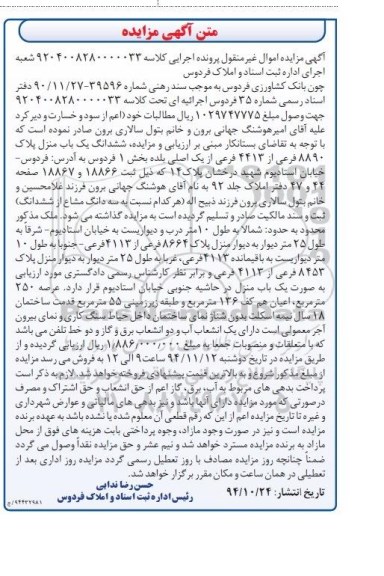 متن آگهی مزایده
آگهی مزایده اموال غیرمنقول پرونده اجرایی کلاسه ۹۲۰۴۰۰۸۲۸۰۰۰۰۰۳۳ شعبه
اجرای اداره ثبت اسناد و املاک فردوس
چون بانک کشاورزی فردوس به موجب سند رهنی شماره ۳۹۵۹۶-۹۰/۱۱/۲۷ دفتر
اسناد رسمی شماره ۳۵ فردوس اجرائیه ای تحت کلاسه ۹۲۰۴۰۰۸۲۸۰۰۰۰۰۳۳
جهت وصول مبلغ ۱۰۲۹۷۴۷۷۷۵ ریال مطالبات خود (اعم از سود و خسارت و دیر کرد
علیه آقای امیرهوشنگ جهانی برون و خانم بتول سالاری برون صادر نموده است که
با توجه به تقاضای بستانکار مبنی بر ارزیابی و مزایده، ششدانگ یک باب منزل پلاک
۸۸۹۰ فرعی از ۴۴۱۳ فرعی از یک اصلی بلده بخش ۱ فردوس به آدرس: فردوس-
خیابان استادیوم شهید درخشان پلاک۱۴ که ذیل ثبت ۱۸۸۶۶ و ۱۸۸۶۷ صفحه
۴۴ و ۴۷ دفتر املاک جلد ۹۲ به نام آقای هوشنگ جهانی برون فرزند غلامحسین و
خانم بتول سالاری برون فرزند ذبیح اله (هر کدام نسبت به سه دانگ مشاع از ششدانگ)
ثبت و سند مالکیت صادر و تسلیم گردیده است به مزایده گذاشته می شود. ملک مذکور
محدود به حدود: شمالاً به طول ۱۰ متر درب و دیواریست به خیابان استادیوم- شرقاً به
طول ۲۵ متر دیوار به دیوار منزل پلاک ۸۶۶۴ فرعی از ۴۱۱۳ فرعی- جنوباً به طول ۱۰
متر دیواریست به باقیمانده ۴۱۱۳ فرعی، غرباً به طول ۲۵ متر دیوار به دیوار منزل پلاک
۸۴۵۳ فرعی از ۴۱۱۳ فرعی و برابر نظر کارشناس رسمی دادگستری مورد ارزیابی
به صورت یک باب منزل در حاشیه جنوبی خیابان استادیوم قرار دارد. عرصه ۲۵۰
مترمربع، اعیان هم کف ۱۳۶ مترمربع و طبقه زیرزمینی ۵۵ مترمربع قدمت ساختمان
۱۸ سال نیمه اسکلت بدون شناژ نمای ساختمان داخل حیاط سنگ کاری و نمای بیرون
آجر معمولی است دارای یک انشعاب آب و دو انشعاب برق و گاز و دو خط تلفن می باشد
که با متعلقات و منصوبات جمعاً به مبلغ ۱/۸۸۶/۰۰۰/۰۰۰ ریال ارزیابی گردیده و از
طریق مزایده در تاریخ دوشنبه ۹۴/۱۱/۱۲ ساعت ۹ الی ۱۲ به فروش می رسد مزایده
از مبلغ مذکور شروع و به بالاترین قیمت پیشنهادی فروخته خواهد شد. لازم به ذکر است
پرداخت بدهی های مربوط به آب، برق، گاز اعم از حق انشعاب و حق اشتراک و مصرف
درصورتی که مورد مزایده دارای آنها باشد و نیز بدهی های مالیاتی و عوارض شهرداری
و غیره تا تاریخ مزایده اعم از این که رقم قطعی آن معلوم شده یا نشده باشد به عهده برنده
مزایده است و نیز در صورت وجود مازاد، وجوه پرداختی بابت هزینه های فوق از محل
مازاد به برنده مزایده مسترد خواهد شد و نیم عشر و حق مزایده نقداً وصول می گردد
ضمناً چنانچه روز مزایده مصادف با روز تعطیل رسمی گردد مزایده روز اداری بعد از
تعطیلی در همان ساعت و مکان مقرر برگزار خواهد شد.
تاریخ انتشار: ۹۴/۱۰/۲۴
حسن رضا ندایی
رئیس اداره ثبت اسناد و املاک فردوس
۹۴۴۲۲۹۸۱/ح